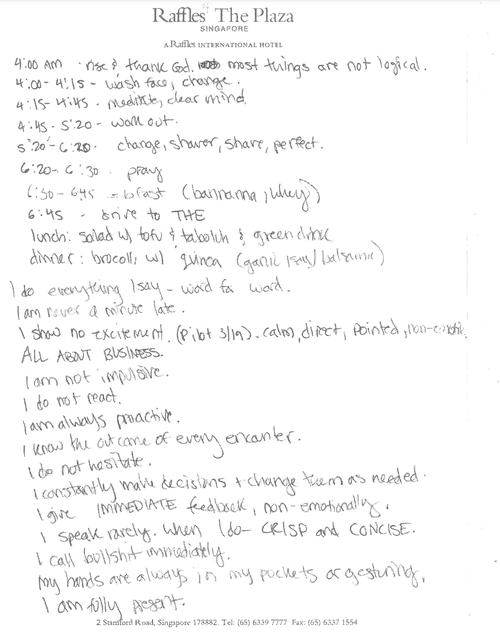 Raffles The Plaza
SINGAPORE
A Raffles INTERNATIONAL HOTEL
4:00 AM · rise & thank God. most things are not logical.
4:00 - 4:15 - wash face, change.
4:15 - 4:45 - meditate, clear mind
4:45 - 5:20 - work out.
5:20 - 6:20 - change, shower, shave, perfect.
6:20 - 6:30 - pray
6:30 - 6:45 - bfast (bannanna, whey)
6:45 - drive to THE
lunch: salad w/ tofu & taboleh & green drink
dinner: brocolli w/ quinoa (garlic/soy/balsamic)
I do everything I say - word for word.
I am never a minute late.
I show no excitement. calm, direct, pointed, non-emotive
ALL ABOUT BUSINESS.
I am not impulsive.
I do not react.
I am always proactive.
I know the outcome of every encounter.
I do not hesitate.
I constantly make decisions & change them as needed.
I give IMMEDIATE feedback, non-emotionally.
I speak rarely. When I do - CRISP and CONCISE.
I call bullshit immediately.
My hands are always in my pockets or gesturing.
I am fully present.
2 Stamford Road, Singapore 178882. Tel: (65) 6339 7777 Fax: (65) 6337 1554